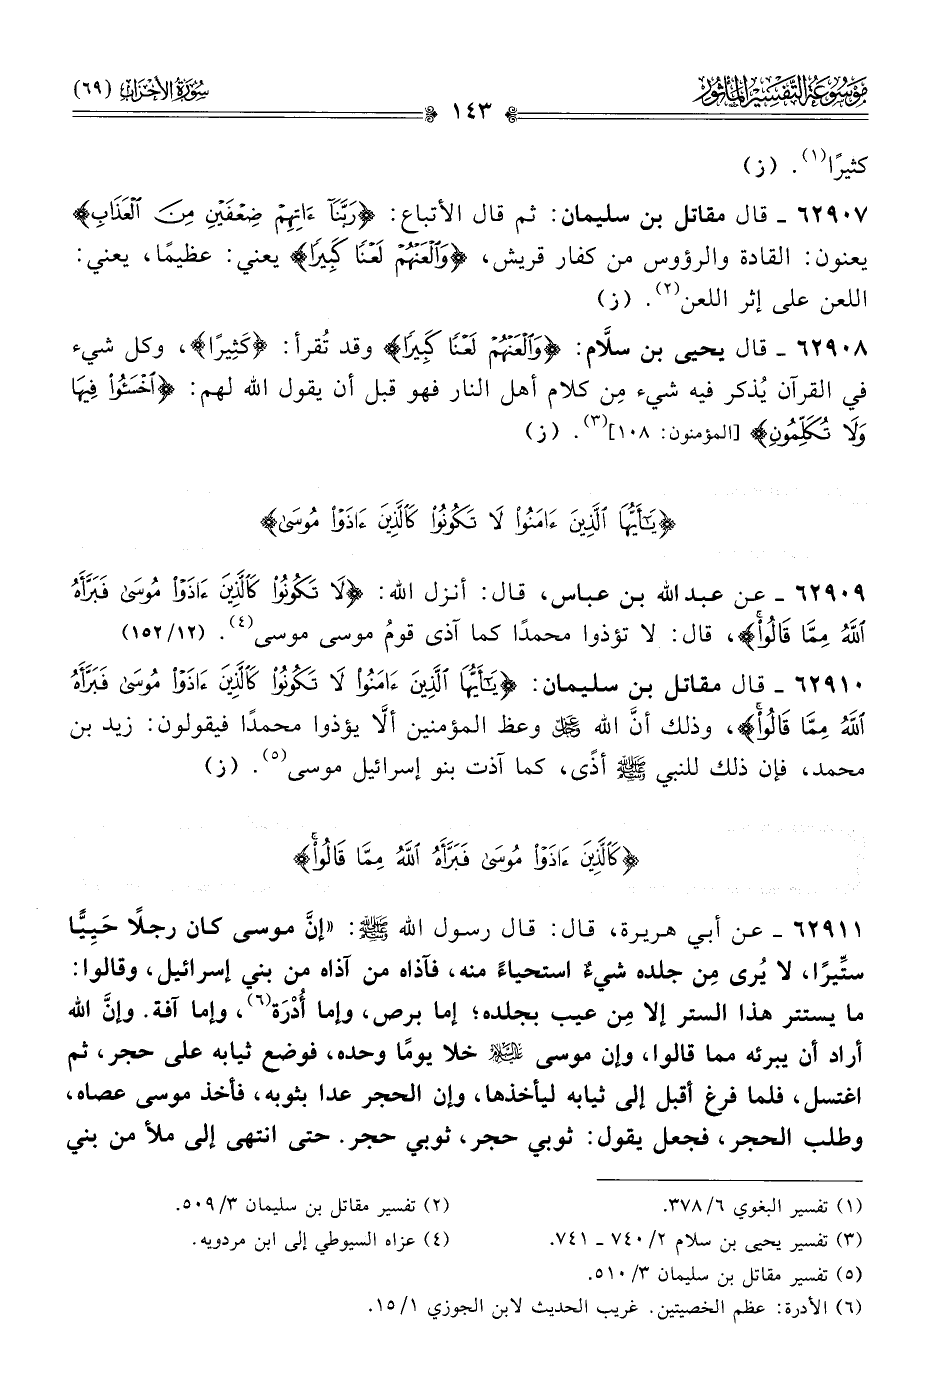 مَوْسُوعَةُ التَّفْسِيرِ المَأْثُورِ
١٤٣
سُورَةُ الأَحْزَابِ (٦٩)
كثيرًا(١). (ز)
٦٢٩٠٧ ـ قال مقاتل بن سليمان: ثم قال الأتباع: ﴿رَبَّنَآ ءَاتِهِمۡ ضِعۡفَيۡنِ مِنَ ٱلۡعَذَابِ﴾
يعنون: القادة والرؤوس من كفار قريش، ﴿وَٱلۡعَنۡهُمۡ لَعۡنٗا كَبِيرٗا﴾ يعني: عظيمًا، يعني:
اللعن على إثر اللعن(٢). (ز)
٦٢٩٠٨ ـ قال يحيى بن سلَّام: ﴿وَٱلۡعَنۡهُمۡ لَعۡنٗا كَبِيرٗا﴾ وقد تُقرأ: ﴿كَثِيرًا﴾، وكل شيء
في القرآن يُذكر فيه شيء مِن كلام أهل النار فهو قبل أن يقول الله لهم: ﴿ٱخۡسَـُٔواْ فِيهَا
وَلَا تُكَلِّمُونِ﴾ [المؤمنون: ١٠٨](٣). (ز)
﴿يَٰٓأَيُّهَا ٱلَّذِينَ ءَامَنُواْ لَا تَكُونُواْ كَٱلَّذِينَ ءَاذَوۡاْ مُوسَىٰ﴾
٦٢٩٠٩ ـ عن عبدالله بن عباس، قال: أنزل الله: ﴿لَا تَكُونُواْ كَٱلَّذِينَ ءَاذَوۡاْ مُوسَىٰ فَبَرَّأَهُ
ٱللَّهُ مِمَّا قَالُواْۚ﴾، قال: لا تؤذوا محمدًا كما آذى قومُ موسى موسى(٤). (١٥٢/١٢)
٦٢٩١٠ ـ قال مقاتل بن سليمان: ﴿يَٰٓأَيُّهَا ٱلَّذِينَ ءَامَنُواْ لَا تَكُونُواْ كَٱلَّذِينَ ءَاذَوۡاْ مُوسَىٰ فَبَرَّأَهُ
ٱللَّهُ مِمَّا قَالُواْۚ﴾، وذلك أنَّ الله ﷿ وعظ المؤمنين ألَّا يؤذوا محمدًا فيقولون: زيد بن
محمد، فإن ذلك للنبي ﷺ أذًى، كما آذت بنو إسرائيل موسى(٥). (ز)
﴿كَٱلَّذِينَ ءَاذَوۡاْ مُوسَىٰ فَبَرَّأَهُ ٱللَّهُ مِمَّا قَالُواْۚ﴾
٦٢٩١١ ـ عن أبي هريرة، قال: قال رسول الله ﷺ: «إنَّ موسى كان رجلًا حَيِيًّا
ستِّيرًا، لا يُرى مِن جلده شيءٌ استحياءً منه، فآذاه من آذاه من بني إسرائيل، وقالوا:
ما يستتر هذا الستر إلا مِن عيب بجلده؛ إما برص، وإما أُدْرَة(٦)، وإما آفة. وإنَّ الله
أراد أن يبرئه مما قالوا، وإن موسى ﵇ خلا يومًا وحده، فوضع ثيابه على حجر، ثم
اغتسل، فلما فرغ أقبل إلى ثيابه ليأخذها، وإن الحجر عدا بثوبه، فأخذ موسى عصاه،
وطلب الحجر، فجعل يقول: ثوبي حجر، ثوبي حجر. حتى انتهى إلى ملأ من بني
(١) تفسير البغوي ٦/ ٣٧٨.
(٢) تفسير مقاتل بن سليمان ٣/ ٥٠٩.
(٣) تفسير يحيى بن سلام ٢/ ٧٤٠ ـ ٧٤١.
(٤) عزاه السيوطي إلى ابن مردويه.
(٥) تفسير مقاتل بن سليمان ٣/ ٥١٠.
(٦) الأدرة: عظم الخصيتين. غريب الحديث لابن الجوزي ١/ ١٥.